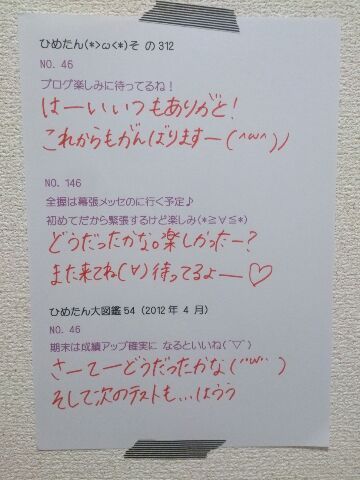 ひめたん(*>ω<*)そ の312
NO. 46
ブログ楽しみに待ってるね！
はーいいつもありがと!
これからもがんばりますー(^ω^)ノ
NO. 146
全握は幕張メッセのに行く予定♪
初めてだから緊張するけど楽しみ(*≧∀≦*)
どうだったかな。楽しかったー?
また来てね(∀)待ってるよー♡
ひめたん大図鑑54（2012年 4 月）
NO. 46
期末は成績アップ確実に なるといいね(´▽`)
さーてーどうだったかな(´ω`)
そして次のテストも…はうう